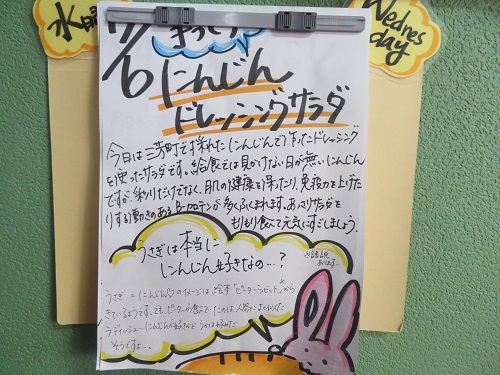 水曜
Wednes
day
7/6
にんじん
ドレッシングサラダ
今日は三芳町で採れたにんじんで作ったドレッシング
を使ったサラダです。給食では見かけない日が無いにんじん
ですが、彩りだけでなく、肌の健康を保ったり、免疫力を上げた
りする働きのあるβ-カロテンが多くふくまれます。あっさりサラダを
もりもり食べて元気にすごしましょう。
うさぎは本当に
にんじん好きなの…?
※諸説
あります…
うさぎ=にんじん♡のイメージは絵本"ピーターラビット"から
きているようです。でも、ピーターが食べていたのは人参によくにた
ラディッシュ…
そうですよ…